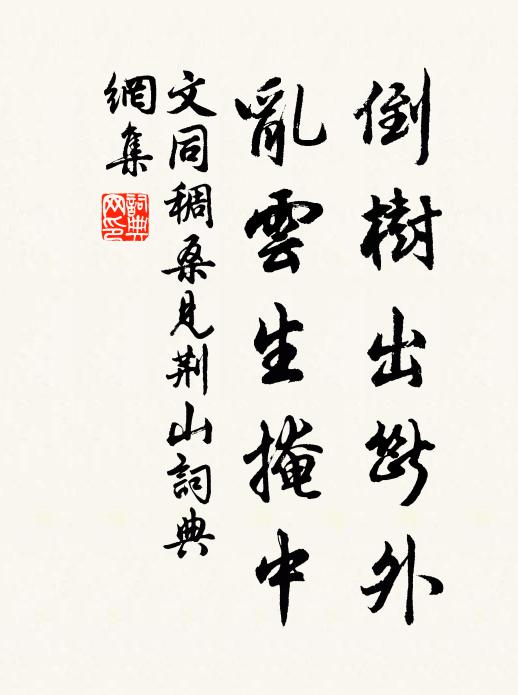 倒樹出斷外
亂雲生掩中
文同稠桑見荆山詞典
網集
詞典
网印